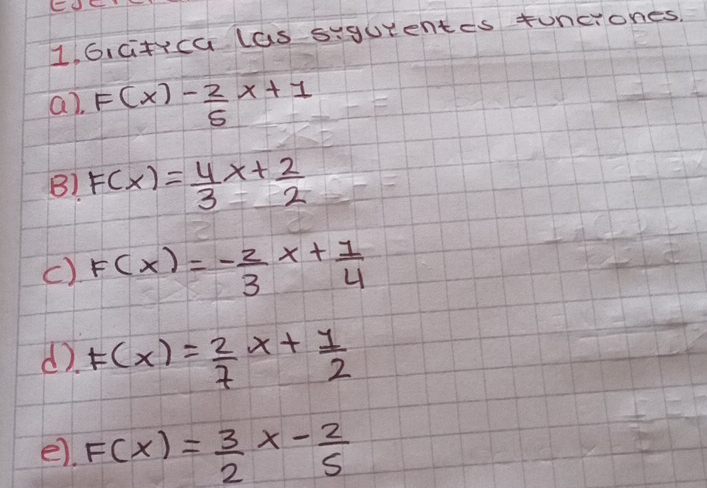 1. Grafica las siguientes funciones.
a). F(x) - 2/5 x + 1
B). F(x) = 4/3 x + 2/2
c) F(x) = -2/3 x + 1/4
d). F(x) = 2/7 x + 1/2
e). F(x) = 3/2 x - 2/5